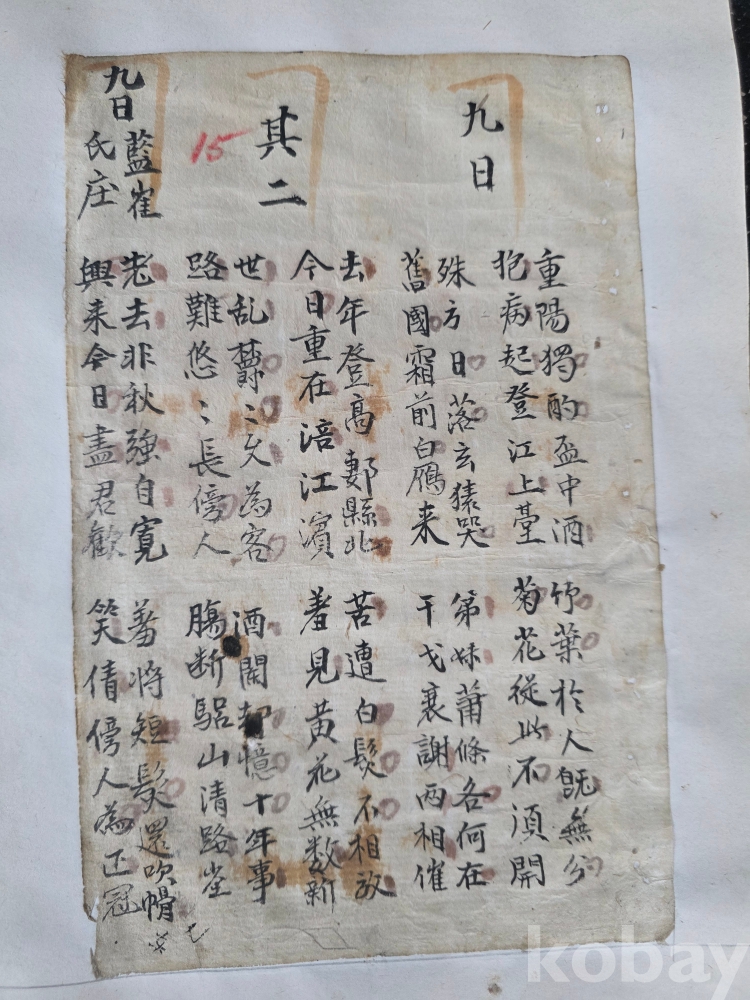 九日
重陽獨酌盃中酒
抱病起登江上臺
竹葉於人旣無分
菊花從此不須開
殊方日落玄猿哭
舊國霜前白鴈来
第妹蕭條各何在
干戈衰謝兩相催
其二
去年登高郪縣北
今日重在涪江濱
苦遭白髮不相放
羞見黃花無数新
世乱欝〻久為客
路難悠〻長傍人
酒闌却憶十年事
腸断驪山清路尘
15
九日藍崔
氏庄
老去非秋強自寬
興来今日盡君歡
羞將短髮還吹帽
笑倩傍人為正冠
kobay